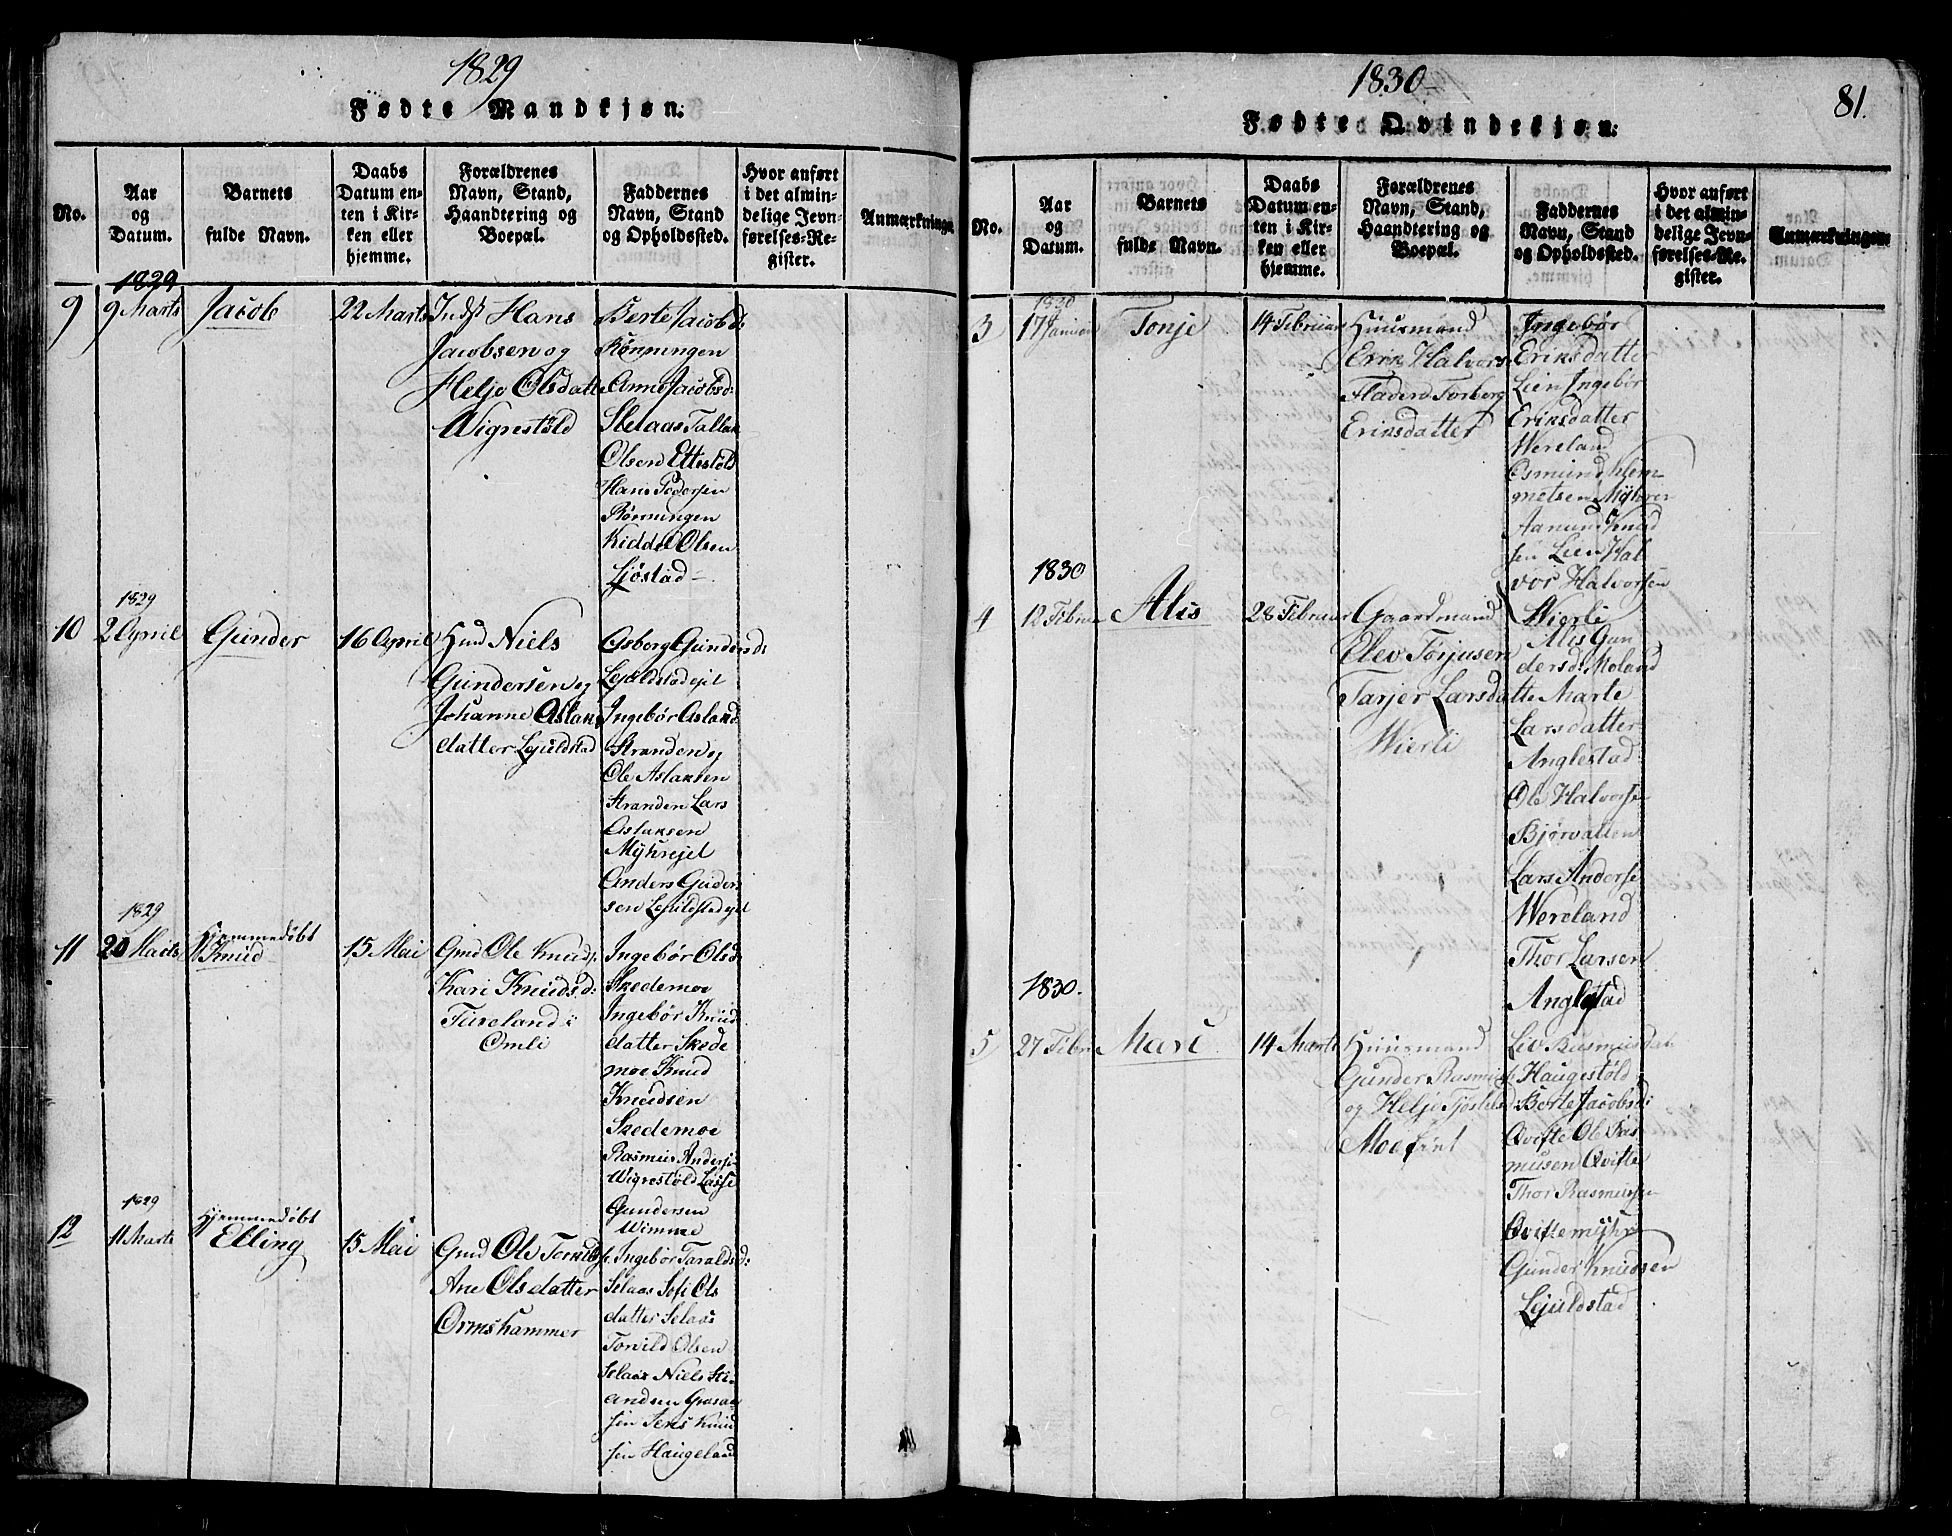 1829
Fødte Mandkjøn.
No.
Aar
og
Datum.
Barnets
fulde Navn.
Daabs
Datum en-
ten i Kir-
ken eller
hjemme.
Forældrenes
Navn, Stand,
Haandtering og
Boepæl.
Faddernes
Navn, Stand
og Opholdssted.
Hvor anført
i det almin-
delige Jevn-
førelses-Re-
gister.
Anmærkninge
1829
9
9 Marts
Jacob
22 Marts
Indst Hans
Jacobsen og
Helje Olsdatte
Wigrestöld
Berte Jacobsd:
Rönningen
Anne Jacobsd:
Selaas Tallak
Olsen Ettestöls
Hans Pedersen
Rönningen
Kiddel Olsen
Ljöstad
1829
10
2 April
Gunder
16 April
Hmd Niels
Gundersen og
Johanne Aslaks
datter Lejuldstad
Asborg Gundersd:
Lejuldstadejet
Ingebör Aslaks
Stranden og
Ole Aslaksen
Stranden Lars
Aslaksen
Myhrejet
Anders Gunder
sen Lejuldstadejet
1829
11
20 Marts
Hjemmedöbt
Knud
15 Mai
Gmd Ole Knuds:
Kari Knudsd:
Tureland i
Omli
Ingebör Olsd:
Skedemoe
Ingebör Knud
datter Skede
moe Knud
Knudsen
Skedemoe
Rasmus Anderse
Wigrestöld Lasse
Gundersen
Wimme
1829
12
11 Marts
Hjemmedöbt
Elling
15 Mai
Gmd Ole Torkilds
Ane Olsdatter
Ormshammer
Ingebör Taraldsd:
Selaas Sofi Ols
datter Selaas
Torvild Olsen
Selaas Niels
sen Jens Knud
sen Haugeland
1830
81.
Fødte Qvindekjøn.
No.
Aar
og
Datum.
Barnets
fulde Navn.
Daabs
Datum en-
ten i Kir-
ken eller
hjemme.
Forældrenes
Navn, Stand,
Haandtering og
Boepæl.
Faddernes
Navn, Stand
og Opholdssted.
Hvor anført
i det almin-
delige Jevn-
førelses-Re-
gister.
Anmærkninger
1830
3
17 Januar
Tonje
14 Februar
Huusmand
Erik Halvors
Fladen Torberg
Eriksdatter
Ingebör
Eriksdatter
Lien Ingebör
Eriksdatter
Wereland
Osmund Klem
metsen Myhren
Aanund Knud
sen Lien Hal
vor Halvorsen
Wierli
1830
4
12 Febru
Alis
28 Februar
Gaardmand
Elev Torjusen
Tarjer Larsdatte
Wierli
Alis Gun
dersd: Moland
Marte
Larsdatter
Anglestad
Ole Halvorse
Bjørvatten
Lars Anderse
Wereland
Thor Larsen
Anglestad
1830.
5
27 Febr
Mari
14 Marts
Huusmand
Gunder Rasmuse
og Helje Tjöstelsd
Moe
Liv Rasmusdat
Haugestöld
Berte Jacobsd:
Qvifte Ole Ras
musen Qvifte
Thor Rasmusse
Qviftemyhr
Gunder Knudsen
Lejuldstad